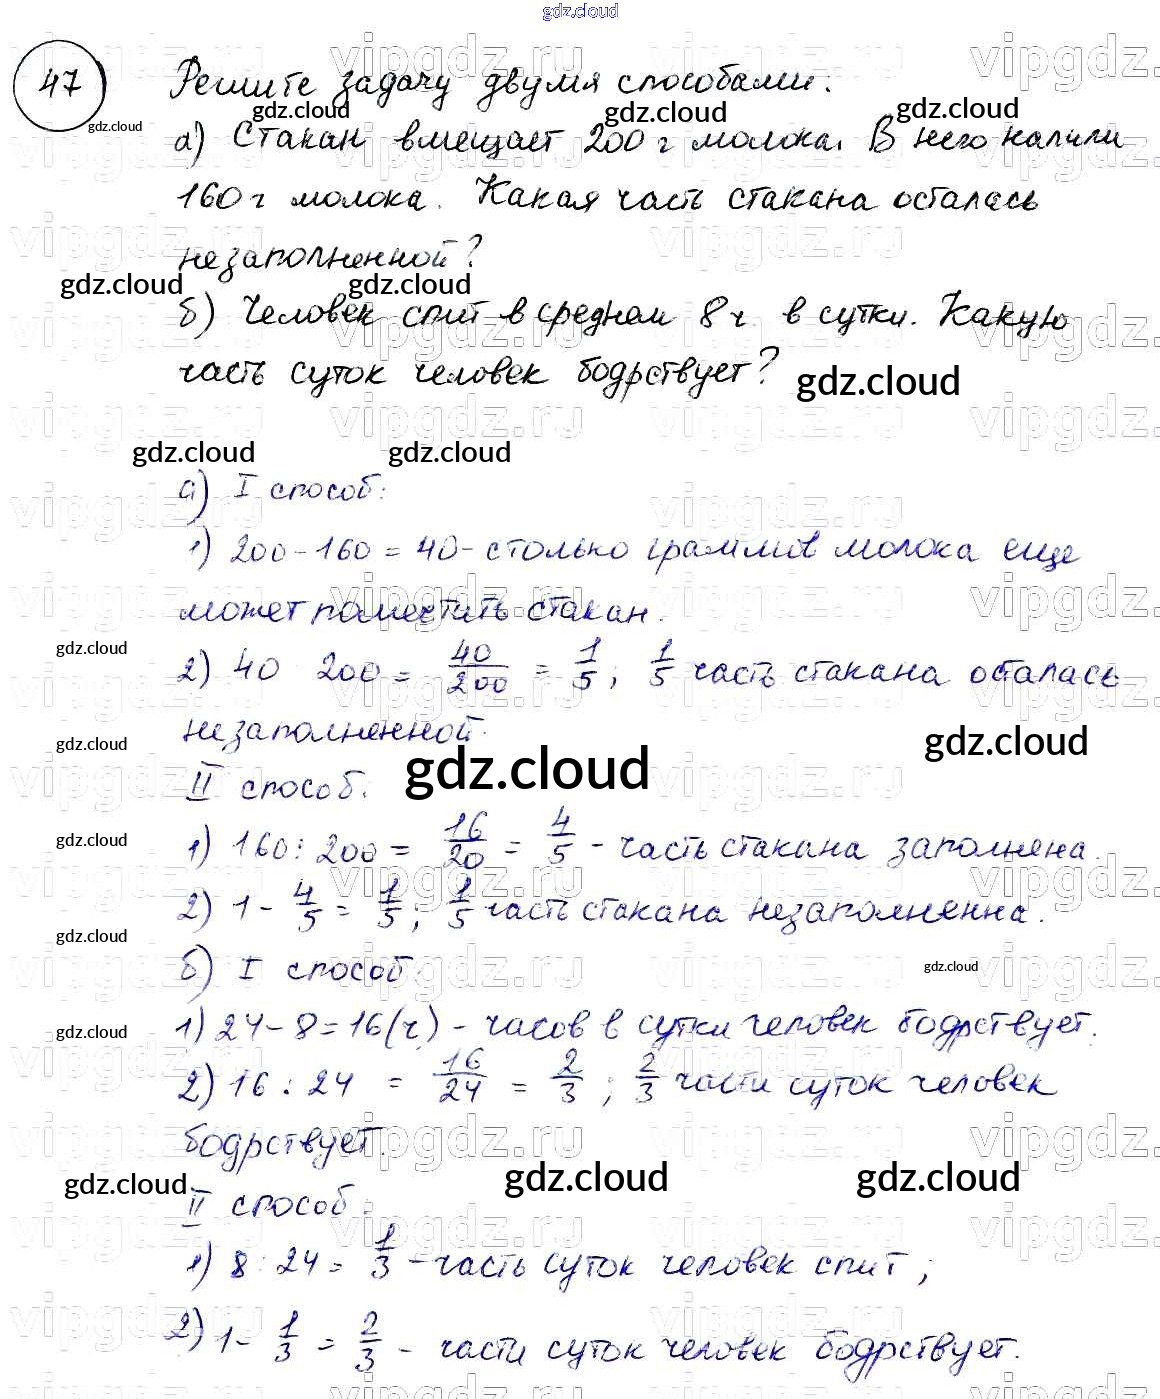 gdz.cloud
47 Решите задачу двумя способами.
а) Стакан вмещает 200 г молока. В него налили
160 г молока. Какая часть стакана осталась
незаполненной?
б) Человек спит в среднем 8 ч в сутки. Какую
часть суток человек бодрствует?
а) I способ:
1) 200 - 160 = 40 - столько граммов молока еще
может поместить стакан.
2) 40 200 = 40/200 = 1/5; 1/5 часть стакана осталась
незаполненной.
II способ.
1) 160 : 200 = 16/20 = 4/5 - часть стакана заполнена.
2) 1 - 4/5 = 1/5; 1/5 часть стакана незаполненна.
б) I способ
1) 24 - 8 = 16 (ч) - часов в сутки человек бодрствует.
2) 16 : 24 = 16/24 = 2/3; 2/3 части суток человек
бодрствует.
II способ:
1) 8 : 24 = 1/3 - часть суток человек спит;
2) 1 - 1/3 = 2/3 - части суток человек бодрствует.